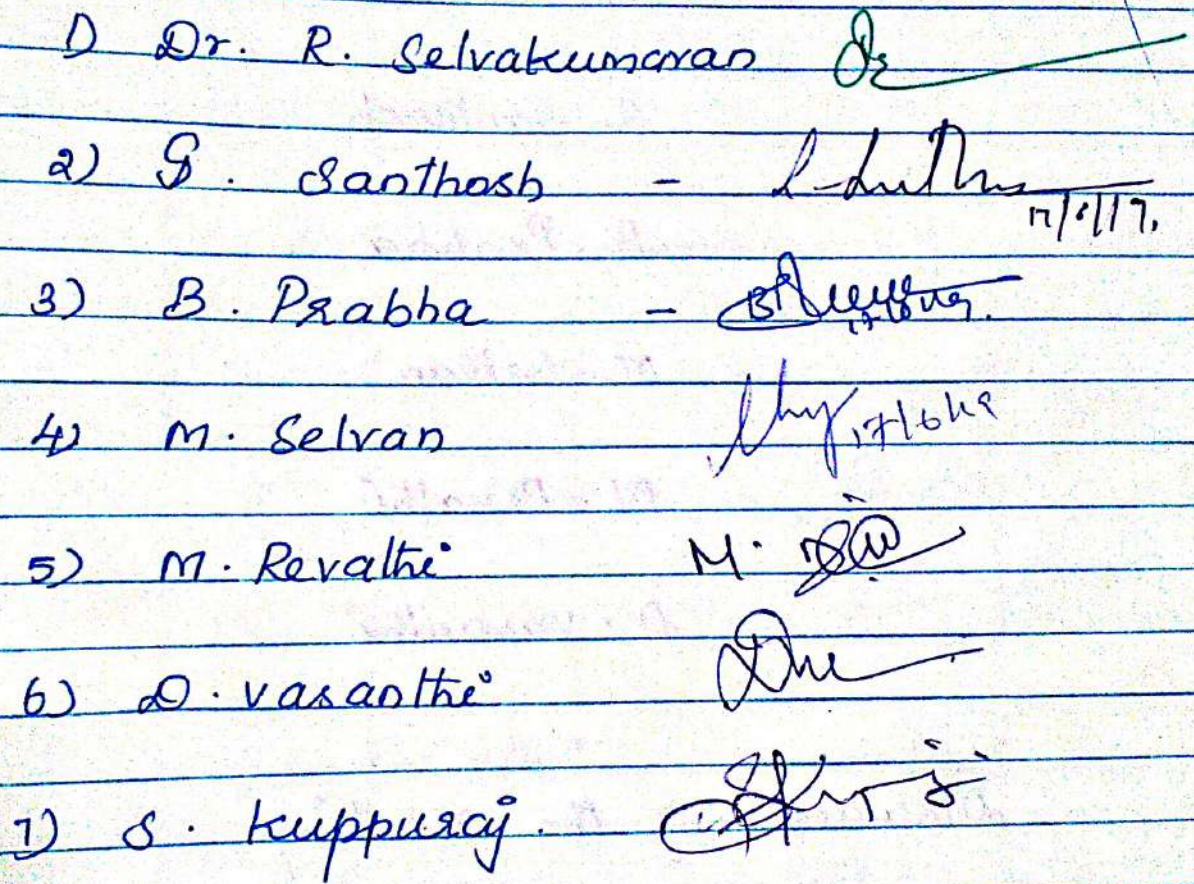 1) Dr. R. Selvakumaran
2) S. Santhosh -
3) B. Prabha -
4) M. Selvan 17/6/19
5) M. Revathi M.
6) D. Vasanthi
7) S. Kuppuraj.